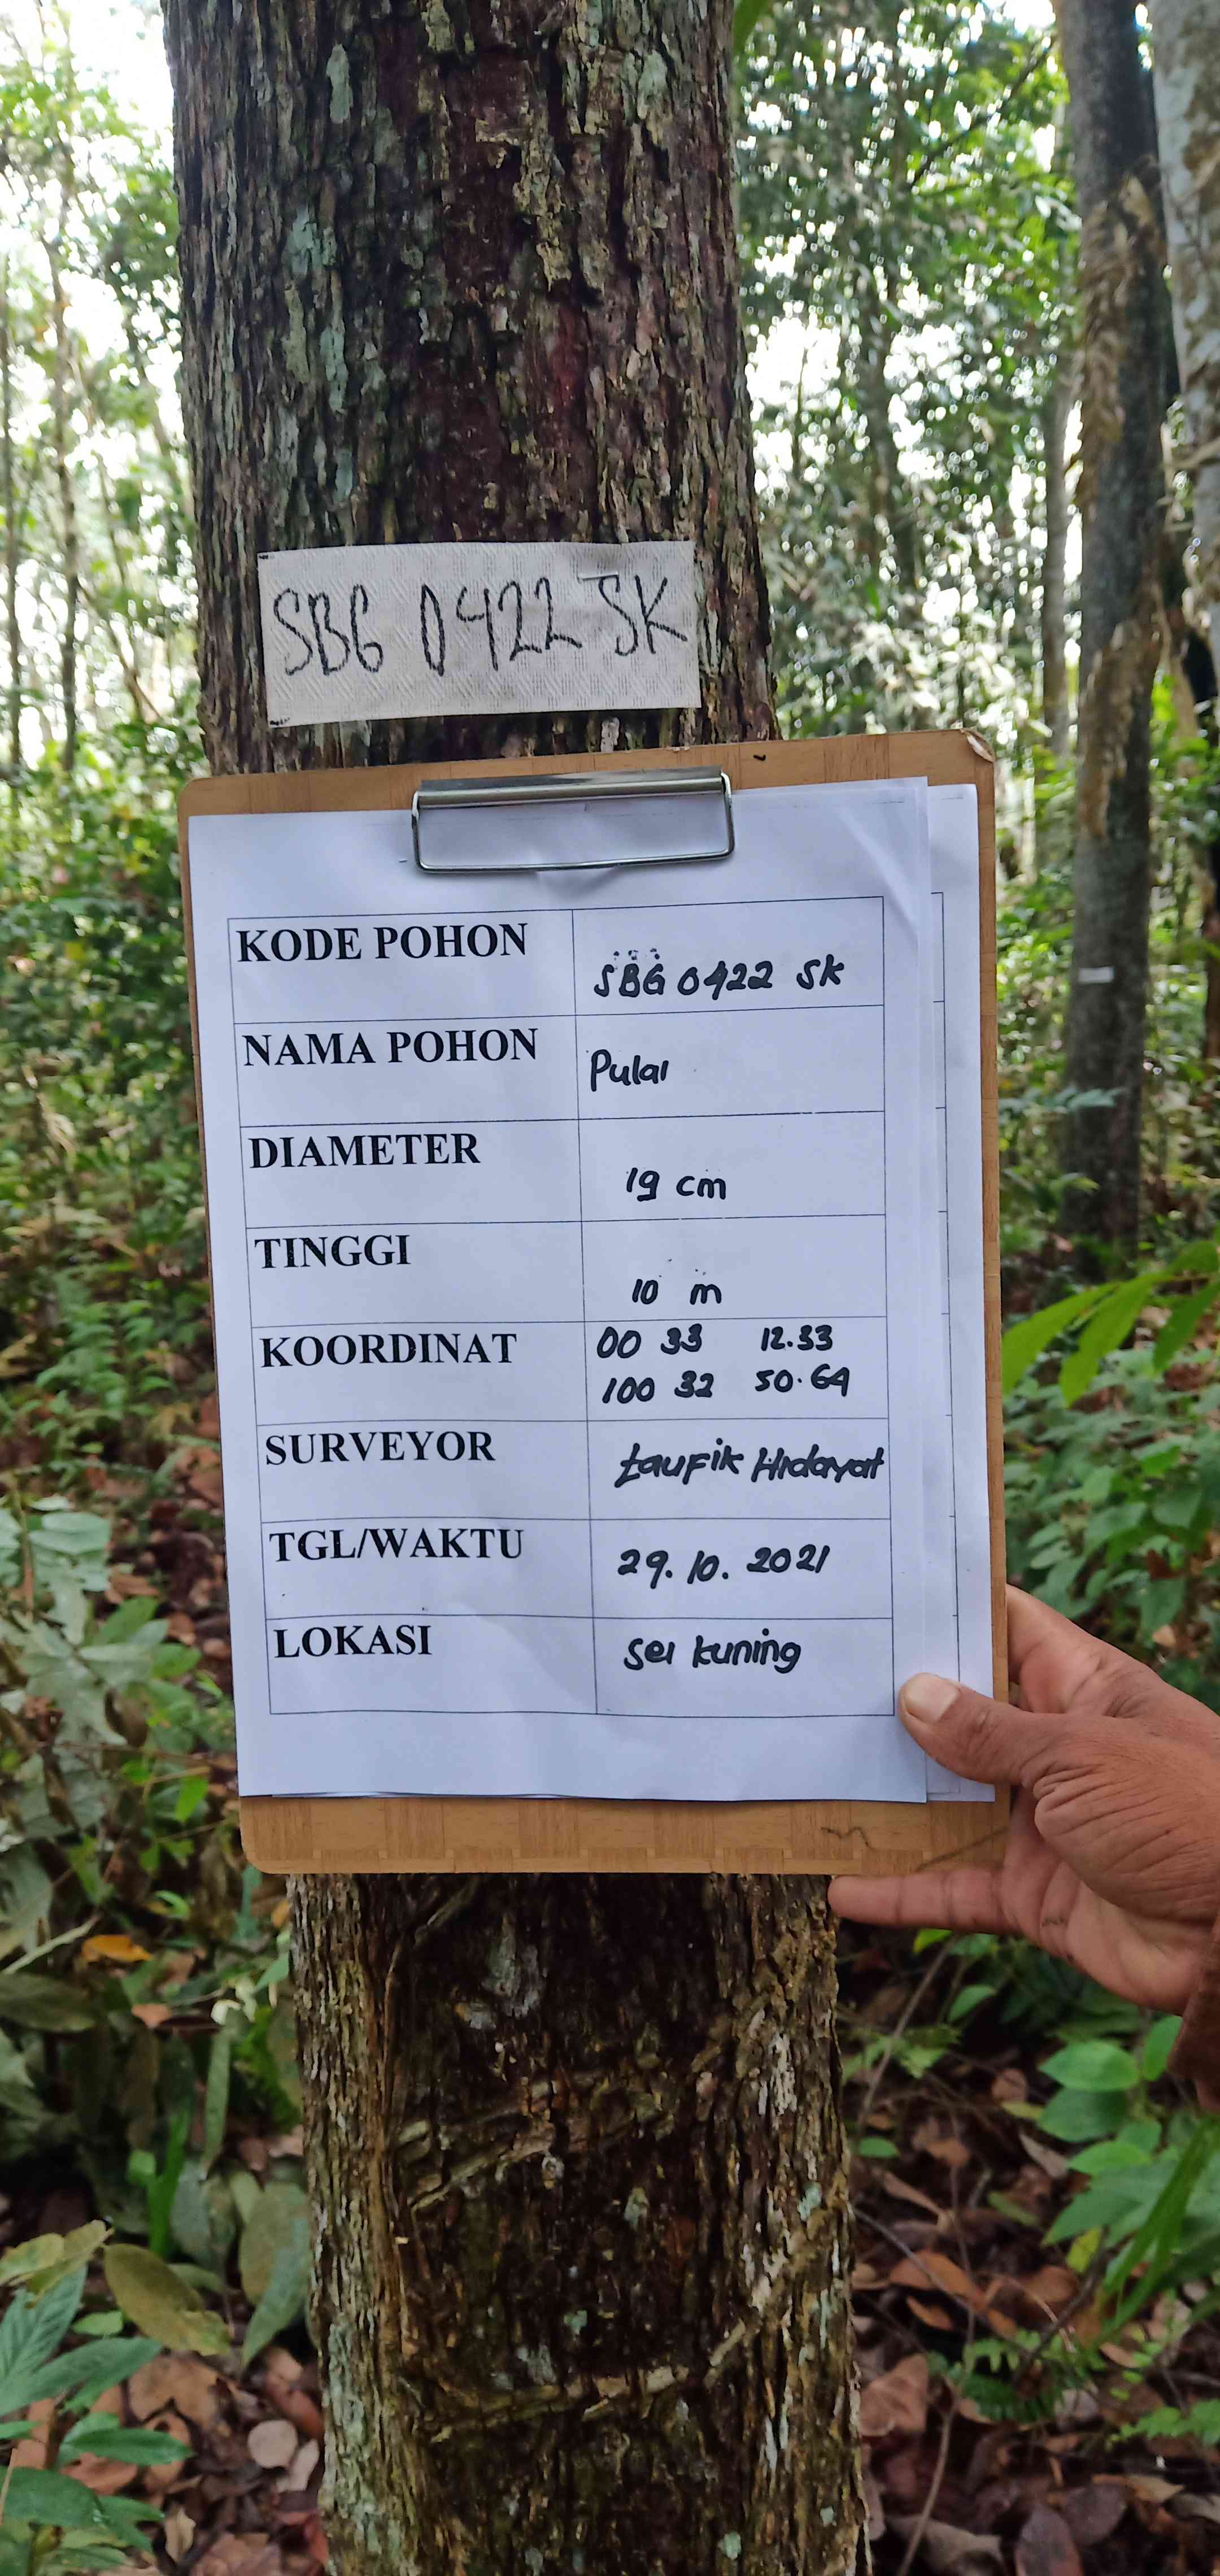 SBG 0422 SK
KODE POHON SBG 0422 SK
NAMA POHON Pulai
DIAMETER 19 cm
TINGGI 10 m
KOORDINAT 00 33 12.33
100 32 50.64
SURVEYOR taufik Hidayat
TGL/WAKTU 29.10.2021
LOKASI Sei kuning